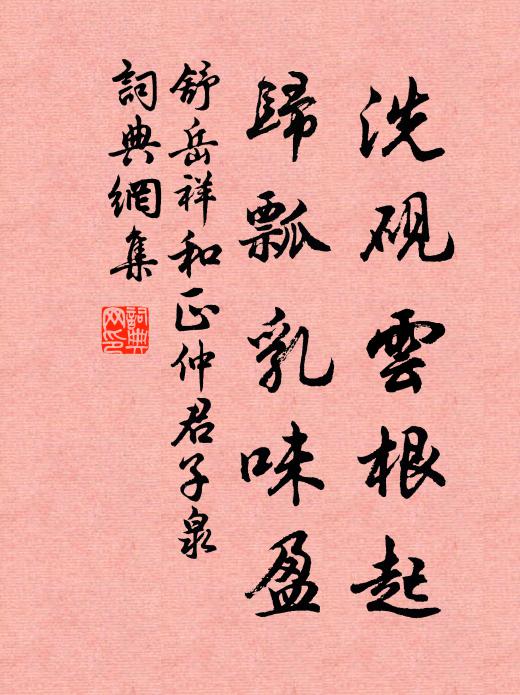 洗硯雲根起
歸瓢乳味盈
舒岳祥和正仲君子泉
詞典網集
詞典
网印